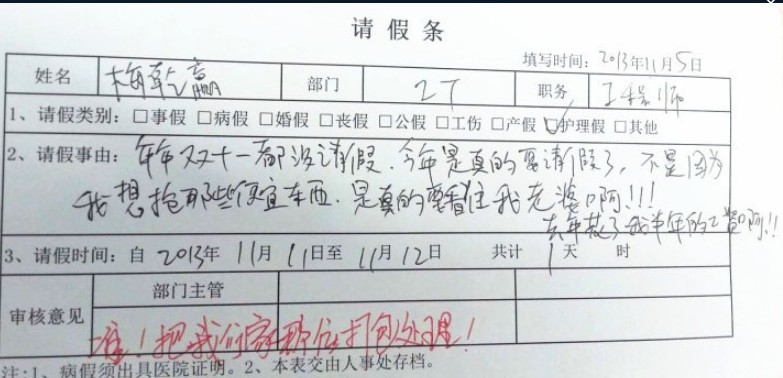 请假条
填写时间：2013年11月5日
姓名 梅乾赢 部门 IT 职务 工程师
1、请假类别：□事假 □病假 □婚假 □丧假 □公假 □工伤 □产假 ☑护理假 □其他
2、请假事由：年年双十一都没请假.今年是真的要请假了,不是因为
我想抢那些便宜东西.是真的要看住我老婆啊!!!
去年败了我半年的工资啊!!
3、请假时间：自 2013年 11月 11日至 11月12日 共计 1天 时
部门主管
审核意见
准!把我们家那位打包处理!
注:1、病假须出具医院证明。2、本表交由人事处存档。